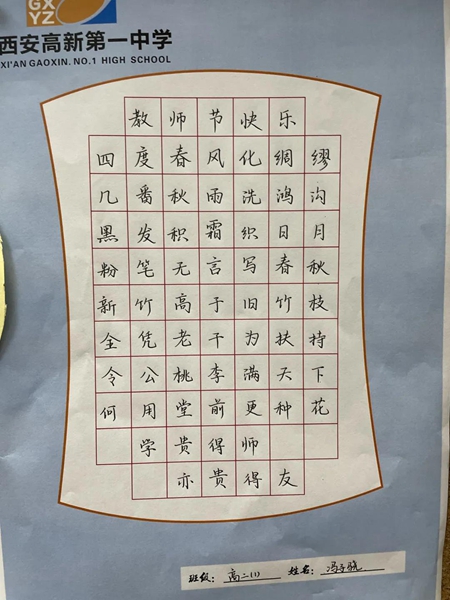 GX
YZ
西安高新第一中学
XI'AN GAOXIN. NO.1 HIGH SCHOOL
教师节快乐
四度春风化绸缪
几番秋雨洗鸿沟
黑发积霜织日月
粉笔无言写春秋
新竹高于旧竹枝
全凭老干为扶持
令公桃李满天下
何用堂前更种花
学贵得师
亦贵得友
班级：高二(1) 姓名：冯子骁